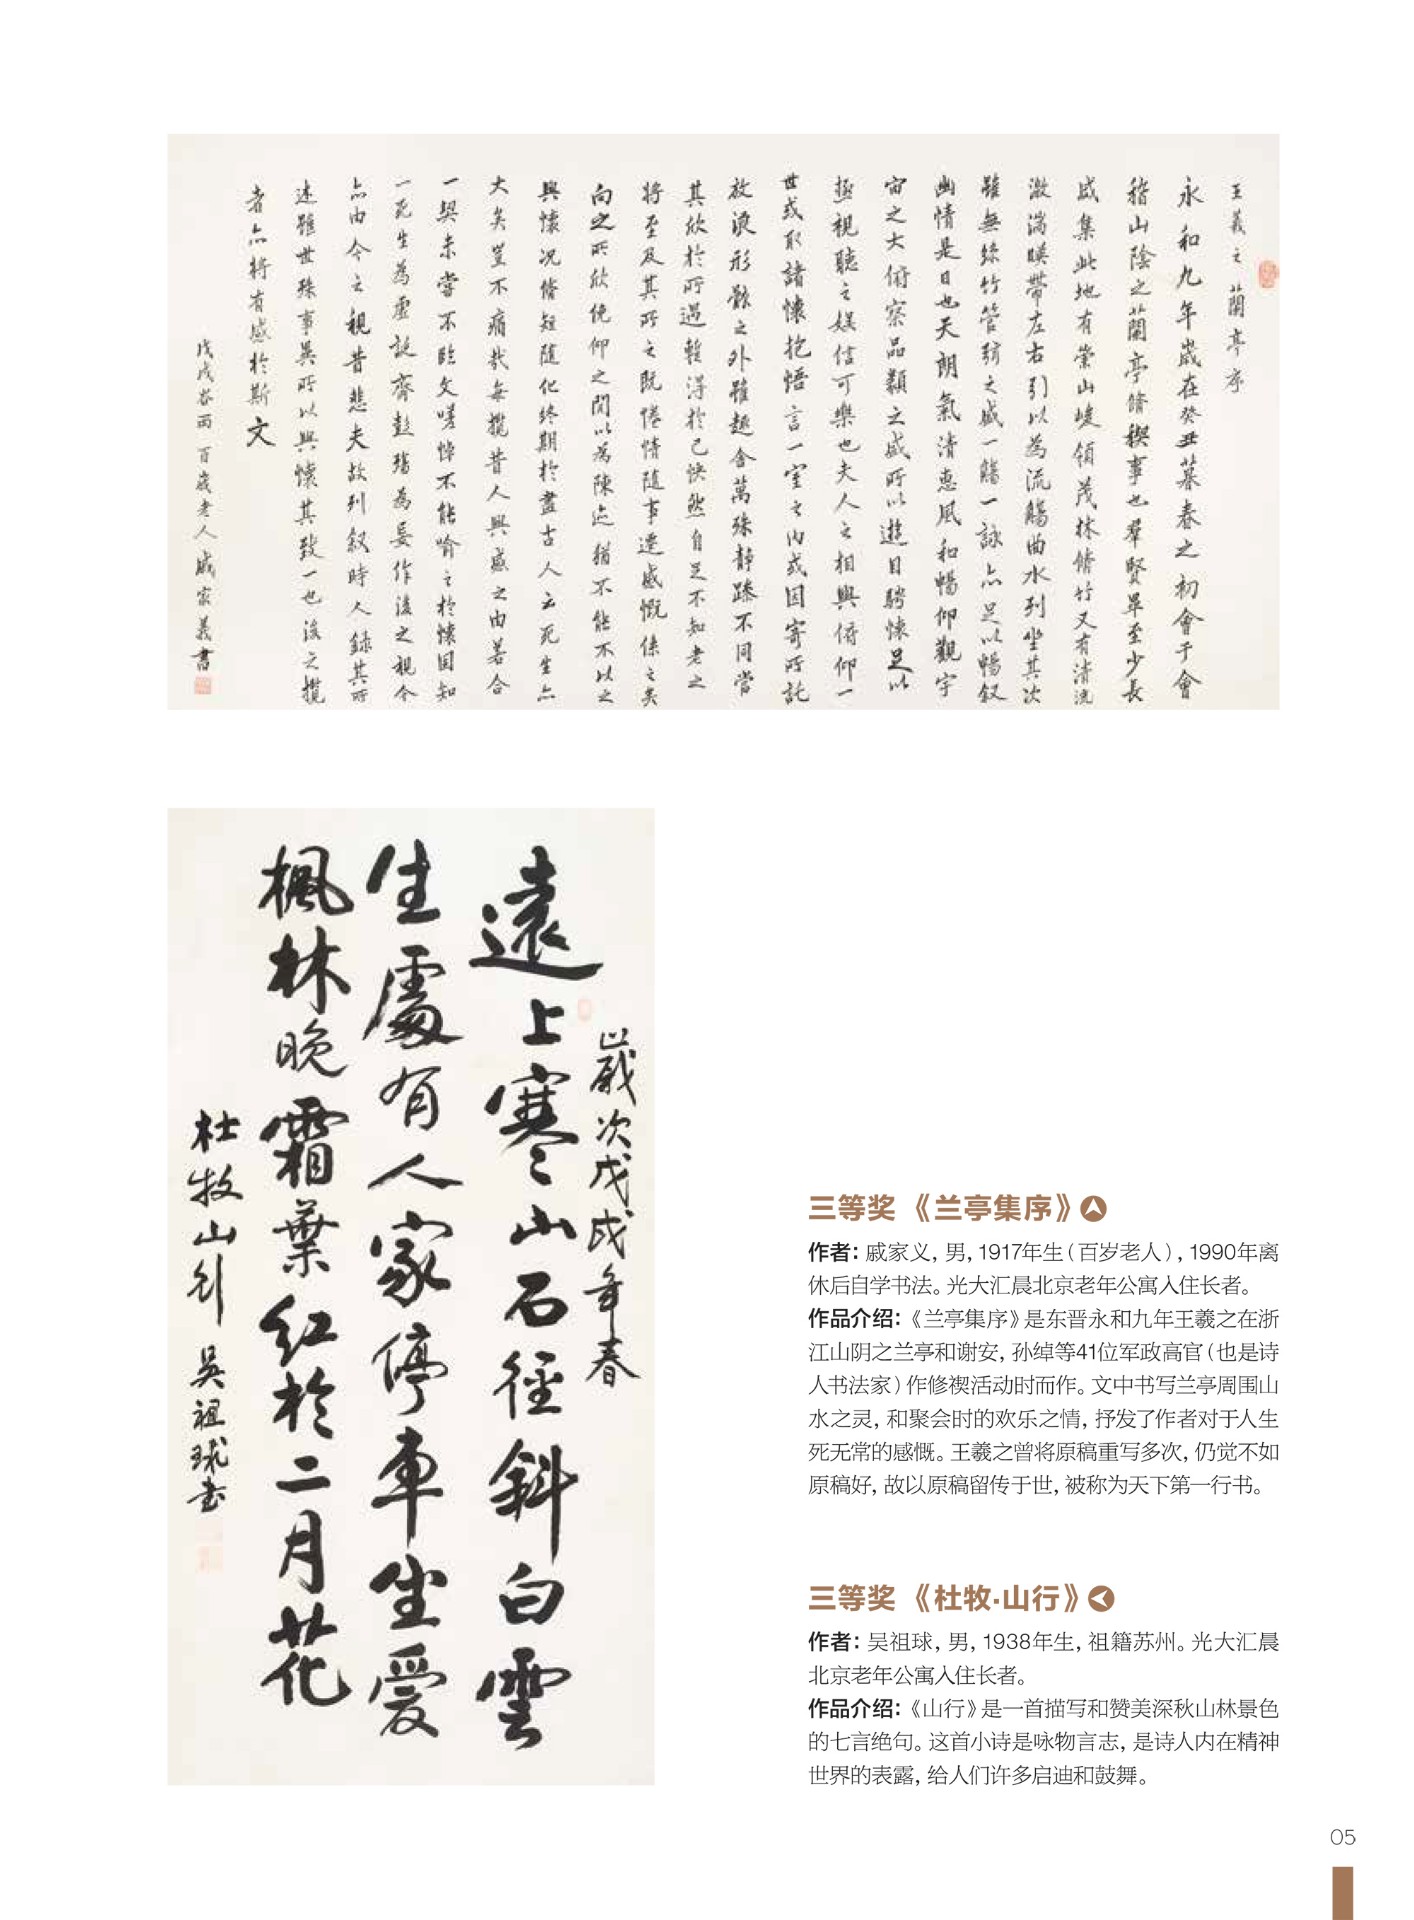 王羲之蘭亭序
永和九年歲在癸丑暮春之初會于會
稽山陰之蘭亭脩禊事也羣賢畢至少長
咸集此地有崇山峻領茂林脩竹又有清流
激湍暎帶左右引以為流觴曲水列坐其次
雖無絲竹管弦之盛一觴一詠亦足以暢叙
幽情是日也天朗氣清惠風和暢仰觀宇
宙之大俯察品類之盛所以遊目騁懷足以
極視聽之娛信可樂也夫人之相與俯仰一
世或取諸懷抱悟言一室之內或因寄所託
放浪形骸之外雖趣舍萬殊靜躁不同當
其欣於所遇暫得於己快然自足不知老之
將至及其所之既惓情隨事遷感慨係之矣
向之所欣俛仰之間以為陳迹猶不能不以之
興懷況脩短隨化終期於盡古人云死生亦
大矣豈不痛哉每攬昔人興感之由若合
一契未嘗不臨文嗟悼不能喻之於懷固知
一死生為虛誕齊彭殤為妄作後之視今
亦由今之視昔悲夫故列叙時人錄其所
述雖世殊事異所以興懷其致一也後之攬
者亦將有感於斯文
戊戌谷雨 百歲老人戚家義書
歲次戊戌年春
遠上寒山石徑斜白雲
生處有人家停車坐愛
楓林晚霜葉紅於二月花
杜牧山行 吳祖球书
三等奖《兰亭集序》
作者：戚家义，男，1917年生（百岁老人），1990年离
休后自学书法。光大汇晨北京老年公寓入住长者。
作品介绍：《兰亭集序》是东晋永和九年王羲之在浙
江山阴之兰亭和谢安，孙绰等41位军政高官（也是诗
人书法家）作修禊活动时而作。文中书写兰亭周围山
水之灵，和聚会时的欢乐之情，抒发了作者对于人生
死无常的感慨。王羲之曾将原稿重写多次，仍觉不如
原稿好，故以原稿留传于世，被称为天下第一行书。
三等奖《杜牧·山行》
作者：吴祖球，男，1938年生，祖籍苏州。光大汇晨
北京老年公寓入住长者。
作品介绍：《山行》是一首描写和赞美深秋山林景色
的七言绝句。这首小诗是咏物言志，是诗人内在精神
世界的表露，给人们许多启迪和鼓舞。
05